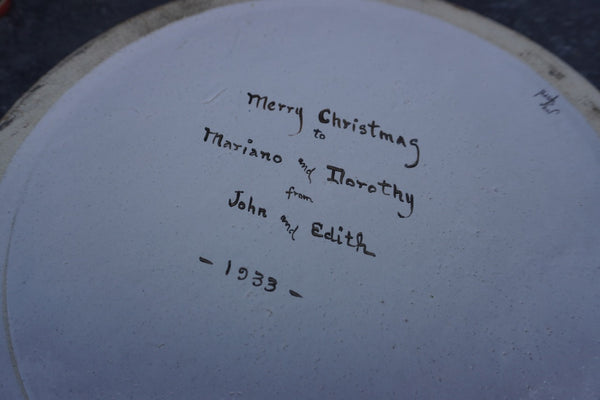 Merry Christmas
to
Mariano and Dorothy
from
John and Edith
- 1933 -